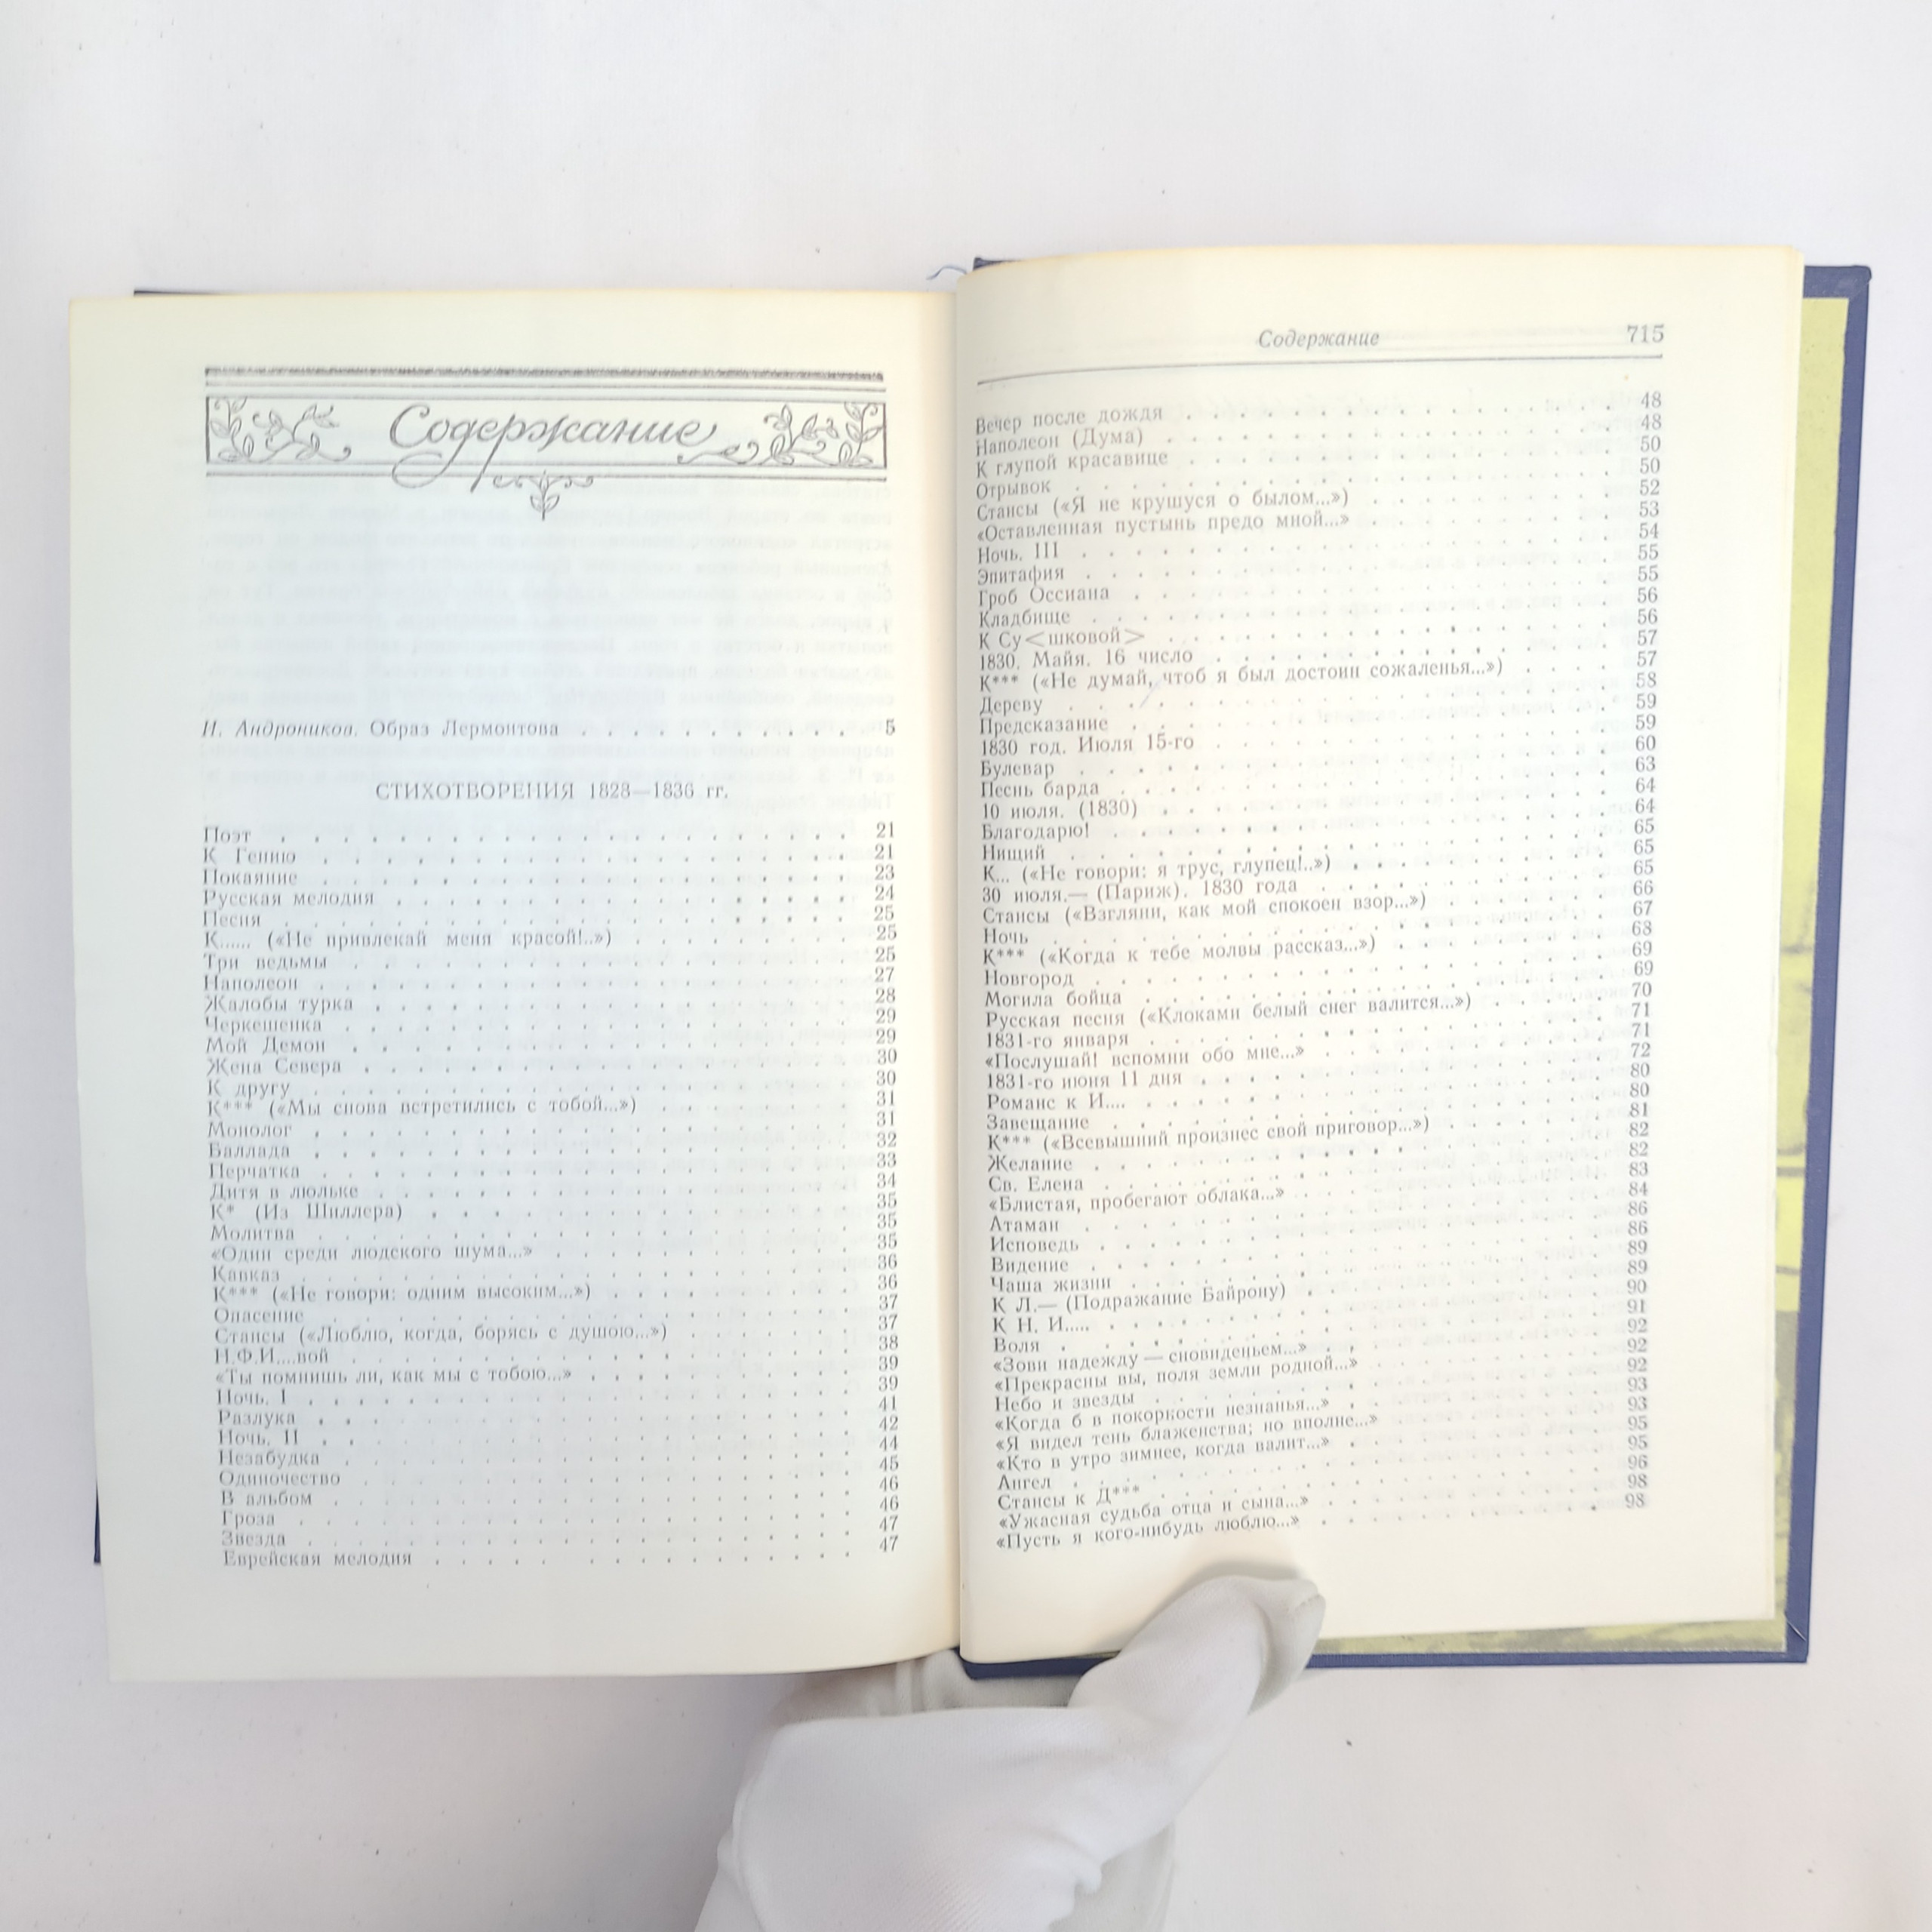 Содержание
И. Андроников. Образ Лермонтова . . . . . . . . . . . . 5
СТИХОТВОРЕНИЯ 1828—1836 гг.
Поэт . . . . . . . . . . . . 21
К Гению . . . . . . . . . . . . 21
Покаяние . . . . . . . . . . . . 23
Русская мелодия . . . . . . . . . . . . 24
Песня . . . . . . . . . . . . 25
К...... («Не привлекай меня красой!..») . . . . . . . . 25
Три ведьмы . . . . . . . . . . . . 25
Наполеон . . . . . . . . . . . . 27
Жалобы турка . . . . . . . . . . . . 28
Черкешенка . . . . . . . . . . . . 29
Мой Демон . . . . . . . . . . . . 29
Жена Севера . . . . . . . . . . . . 30
К другу . . . . . . . . . . . . 30
К*** («Мы снова встретились с тобой...») . . . . . . . 31
Монолог . . . . . . . . . . . . 31
Баллада . . . . . . . . . . . . 32
Перчатка . . . . . . . . . . . . 33
Дитя в люльке . . . . . . . . . . . . 34
К* (Из Шиллера) . . . . . . . . . . . . 35
Молитва . . . . . . . . . . . . 35
«Один среди людского шума...» . . . . . . . . . 35
Кавказ . . . . . . . . . . . . 36
К*** («Не говори: одним высоким...») . . . . . . . . 36
Опасение . . . . . . . . . . . . 37
Стансы («Люблю, когда, борясь с душою...») . . . . . . 37
Н.Ф.И....вой . . . . . . . . . . . . 38
«Ты помнишь ли, как мы с тобою...» . . . . . . . . 39
Ночь. I . . . . . . . . . . . . 39
Разлука . . . . . . . . . . . . 41
Ночь. II . . . . . . . . . . . . 42
Незабудка . . . . . . . . . . . . 44
Одиночество . . . . . . . . . . . . 45
В альбом . . . . . . . . . . . . 46
Гроза . . . . . . . . . . . . 46
Звезда . . . . . . . . . . . . 47
Еврейская мелодия . . . . . . . . . . . . 47
Содержание 715
Вечер после дождя . . . . . . . . . . . . 48
Наполеон (Дума) . . . . . . . . . . . . 48
К глупой красавице . . . . . . . . . . . . 50
Отрывок . . . . . . . . . . . . 50
Стансы («Я не крушуся о былом...») . . . . . . . . 52
«Оставленная пустынь предо мной...» . . . . . . . . 53
Ночь. III . . . . . . . . . . . . 54
Эпитафия . . . . . . . . . . . . 55
Гроб Оссиана . . . . . . . . . . . . 55
Кладбище . . . . . . . . . . . . 56
К Су<шковой> . . . . . . . . . . . . 56
1830. Майя. 16 число . . . . . . . . . . . . 57
К*** («Не думай, чтоб я был достоин сожаленья...») . . . . 57
Дереву . . . . . . . . . . . . 58
Предсказание . . . . . . . . . . . . 59
1830 год. Июля 15-го . . . . . . . . . . . . 59
Булевар . . . . . . . . . . . . 60
Песнь барда . . . . . . . . . . . . 63
10 июля. (1830) . . . . . . . . . . . . 64
Благодарю! . . . . . . . . . . . . 64
Нищий . . . . . . . . . . . . 65
К... («Не говори: я трус, глупец!..») . . . . . . . . 65
30 июля.— (Париж). 1830 года . . . . . . . . . 65
Стансы («Взгляни, как мой спокоен взор...») . . . . . . 66
Ночь . . . . . . . . . . . . 67
К*** («Когда к тебе молвы рассказ...») . . . . . . . 68
Новгород . . . . . . . . . . . . 69
Могила бойца . . . . . . . . . . . . 69
Русская песня («Клоками белый снег валится...») . . . . 70
1831-го января . . . . . . . . . . . . 71
«Послушай! вспомни обо мне...» . . . . . . . . . 71
1831-го июня 11 дня . . . . . . . . . . . . 72
Романс к И.... . . . . . . . . . . . . 80
Завещание . . . . . . . . . . . . 80
К*** («Всевышний произнес свой приговор...») . . . . . . 81
Желание . . . . . . . . . . . . 82
Св. Елена . . . . . . . . . . . . 82
«Блистая, пробегают облака...» . . . . . . . . . 83
Атаман . . . . . . . . . . . . 84
Исповедь . . . . . . . . . . . . 86
Видение . . . . . . . . . . . . 86
Чаша жизни . . . . . . . . . . . . 89
К Л.— (Подражание Байрону) . . . . . . . . . 89
К Н. И..... . . . . . . . . . . . . 90
Воля . . . . . . . . . . . . 91
«Зови надежду — сновиденьем...» . . . . . . . . 92
«Прекрасны вы, поля земли родной...» . . . . . . . 92
Небо и звезды . . . . . . . . . . . . 92
«Когда б в покорности незнанья...» . . . . . . . . 93
«Я видел тень блаженства; но вполне...» . . . . . . . 93
«Кто в утро зимнее, когда валит...» . . . . . . . . 95
Ангел . . . . . . . . . . . . 95
Стансы к Д*** . . . . . . . . . . . . 96
«Ужасная судьба отца и сына...» . . . . . . . . . 98
«Пусть я кого-нибудь люблю...» . . . . . . . . . 98